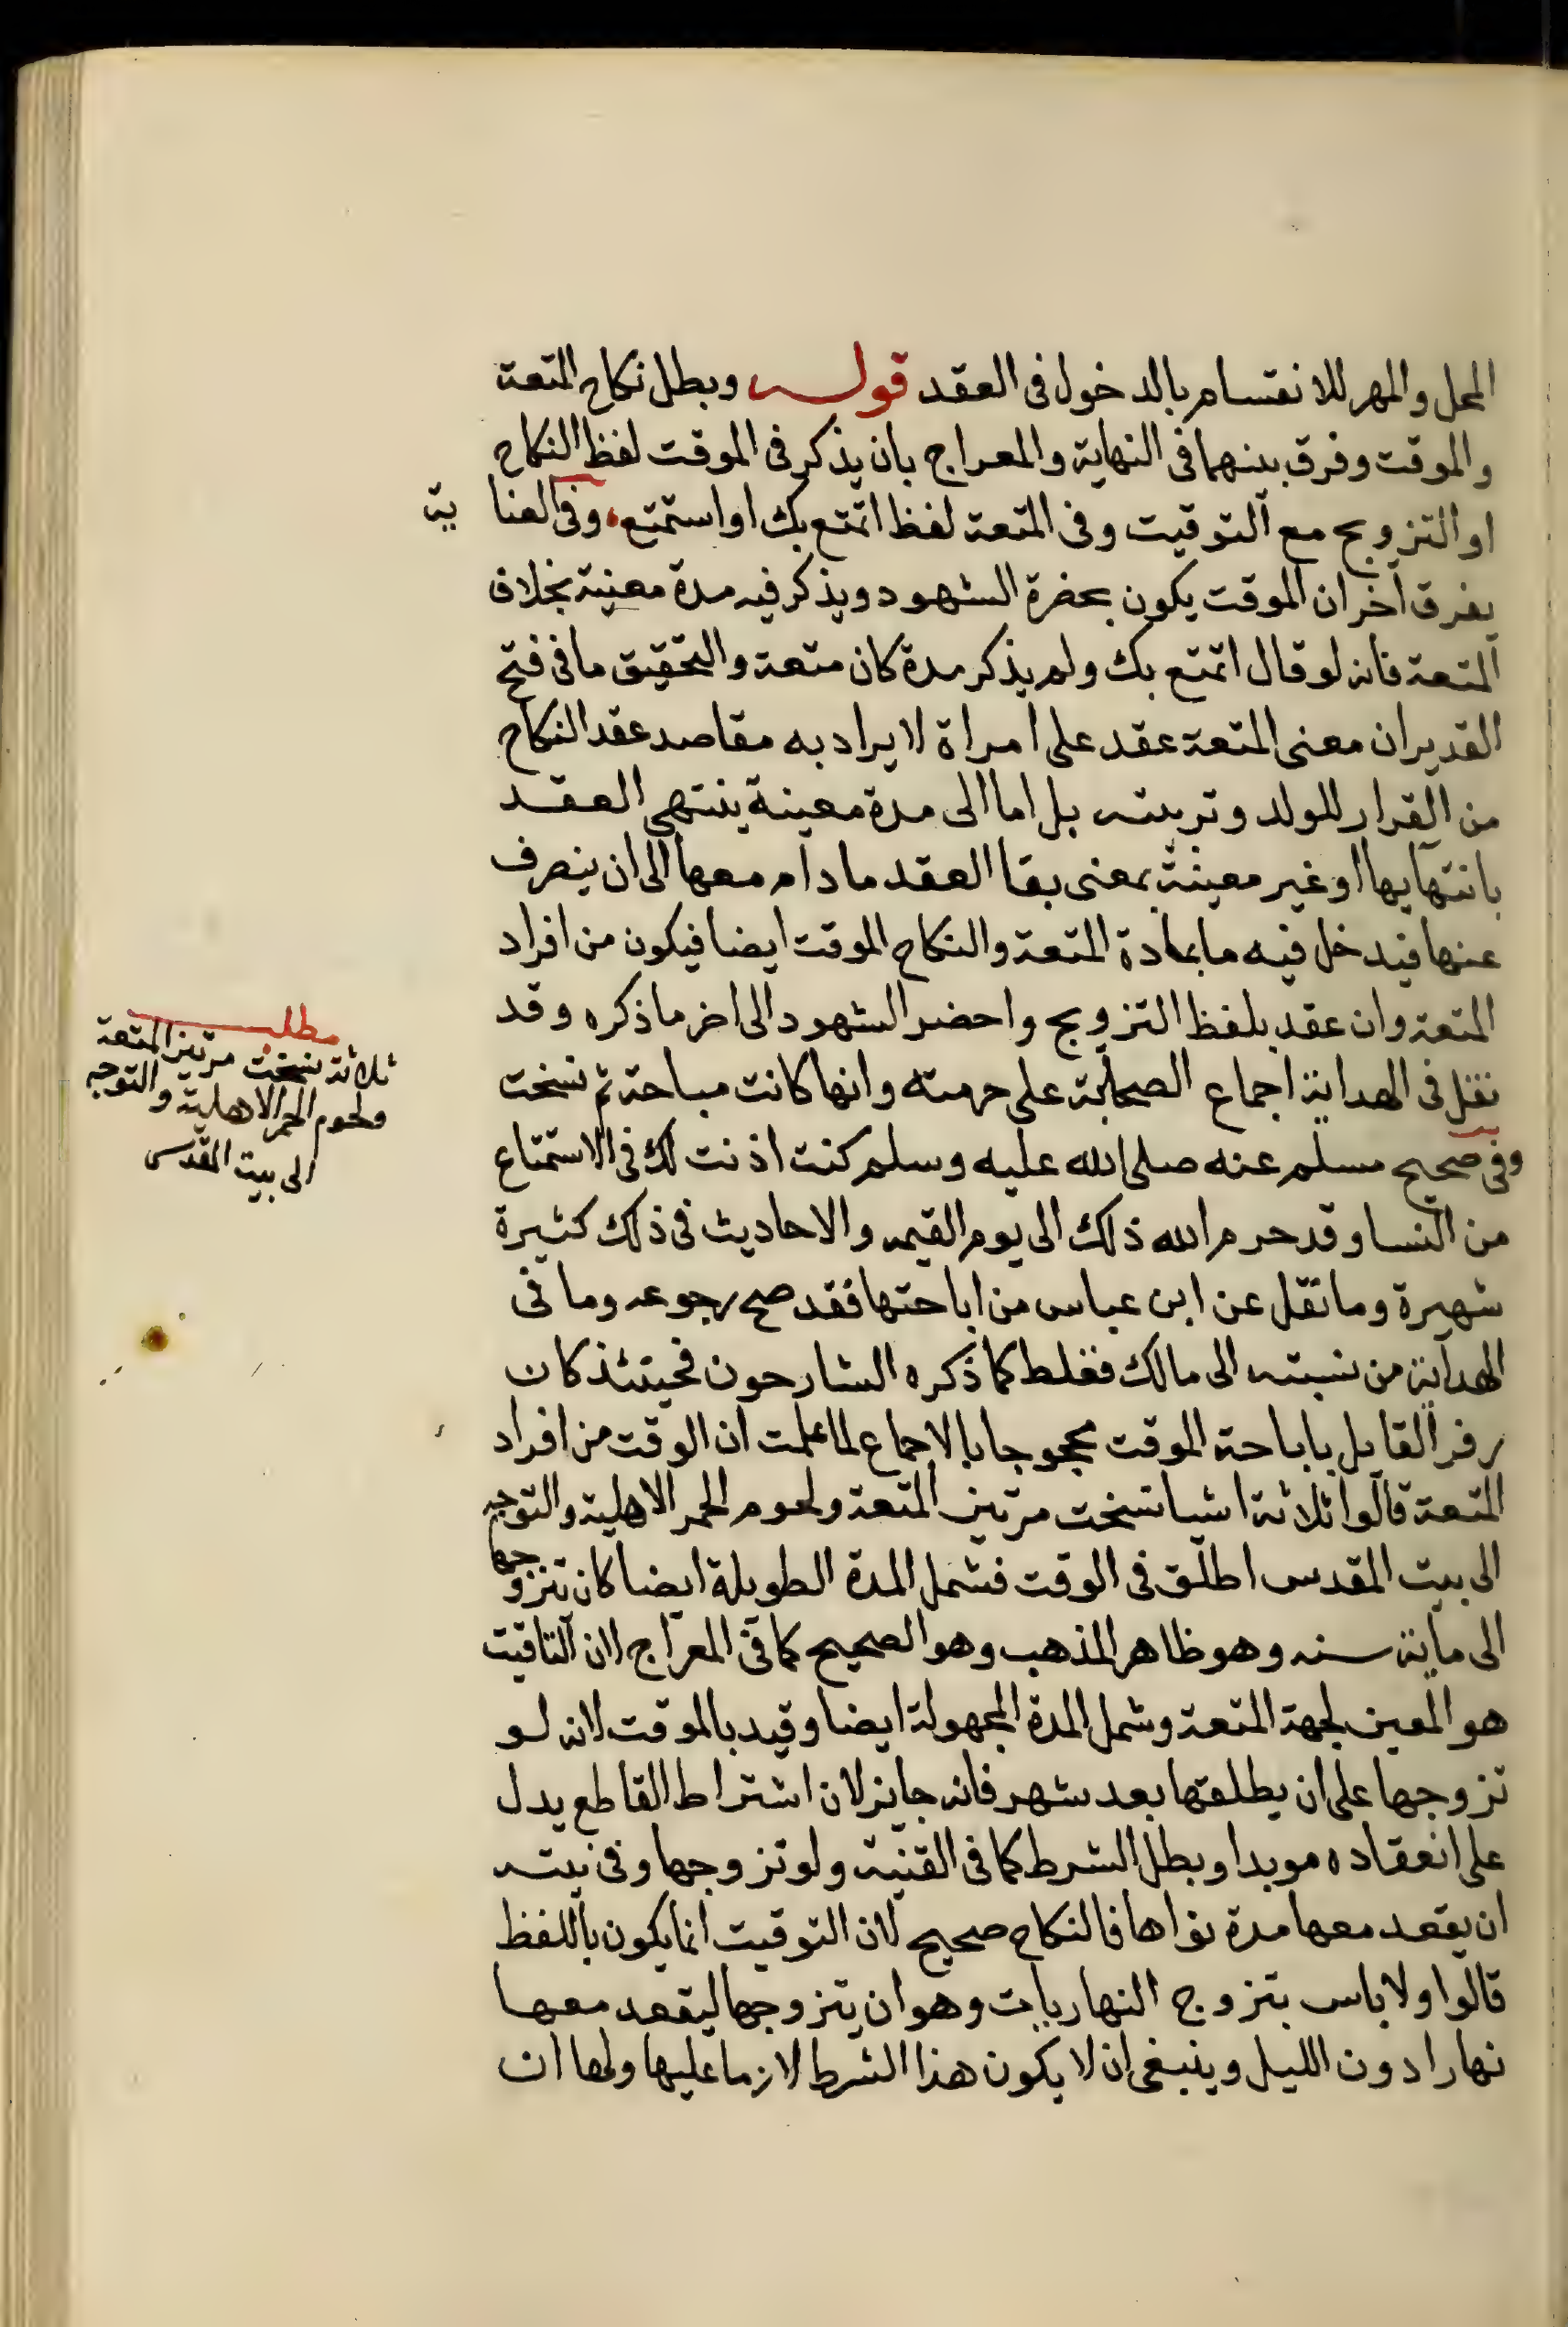 المحل والمهر للانقسام بالدخول فى العقد قوله وبطل نكاح المتعة
والموقت وفرق بينهما فى النهاية والمعراج بان يذكر فى الموقت لفظ النكاح
او التزويج مع التوقيت وفى المتعة لفظ اتمتع بك او استمتع وفى العناية
بفرق آخر ان الموقت يكون بحضرة الشهود ويذكر فيه مدة معينة بخلاف
المتعة فانه لو قال اتمتع بك ولم يذكر مدة كان متعة والتحقيق ما فى فتح
القدير ان معنى المتعة عقد على امراة لا يراد به مقاصد عقد النكاح
من القرار للولد وتربيته بل اما الى مدة معينة ينتهى العقد
بانتهايها او غير معينة بمعنى بقا العقد ما دام معها الى ان ينصرف
عنها فيدخل فيه ما بمادة المتعة والنكاح الموقت ايضا فيكون من افراد
المتعة وان عقد بلفظ التزويج واحضر الشهود الى اخر ما ذكره وقد
نقل فى الهداية اجماع الصحابة على حرمته وانها كانت مباحة ثم نسخت
وفى صحيح مسلم عنه صلى الله عليه وسلم كنت اذنت لك فى الاستمتاع
من النسا وقد حرم الله ذلك الى يوم القيمه والاحاديث فى ذلك كثيرة
شهيرة وما نقل عن ابن عباس من اباحتها فقد صح رجوعه وما فى
الهداية من نسبته الى مالك فغلط كما ذكره الشارحون فحينئذ كان
زفر القايل باباحة الموقت محجوجا بالاجماع لما علمت ان الوقت من افراد
المتعة قالوا ثلاثة اشيا نسخت مرتين المتعة ولحوم الحمر الاهلية والتوجه
الى بيت المقدس اطلق فى الوقت فشمل المدة الطويلة ايضا كان تزوجها
الى ماية سنه وهو ظاهر المذهب وهو الصحيح كما فى المعراج لان التاقيت
هو المعين لجهة المتعة وشمل المدة المجهولة ايضا وقيد بالموقت لانه لو
تزوجها على ان يطلقها بعد شهر فانه جايز لان اشتراط القاطع يدل
على انعقاده موبدا وبطل الشرط كما فى القنية ولو تزوجها وفى نيته
ان يقعد معها مدة نواها فالنكاح صحيح لان التوقيت انما يكون باللفظ
قالوا ولا باس بتزوج النهاريات وهو ان يتزوجها ليقعد معها
نهارا دون الليل وينبغى ان لا يكون هذا الشرط لازما عليها ولها ان
مطلب
ثلاثة نسخت مرتين المتعة
ولحوم الحمر الاهلية والتوجه
الى بيت المقدس